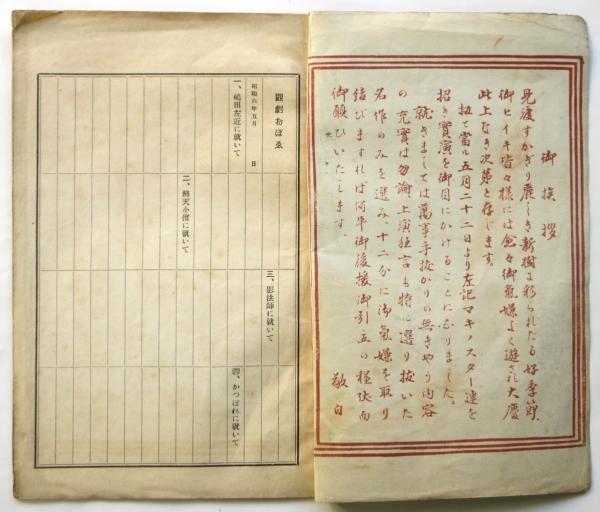 御挨拶
見渡すかぎり麗らかき新樹に彩られたる好季節、
御ヒイキ皆々様には愈々御氣嫌よく遊され大慶
此上なき次第と存じます。
扨て當ル五月二十二日より左記マキノスター連を
招き實演を御目にかけることになりました。
就きましては萬事手抜かりの無きやう内容
の充實は勿論、上演狂言も特に選り抜いた
名作のみを選み、十二分に御氣嫌を取り
結びますれば何卒御後援御引立の程伏而
御願ひいたします。
敬白
觀劇おぼゑ
昭和六年五月 日
一、嶋田左近に就いて
二、辨天小僧に就いて
三、影法師に就いて
四、かつぽれに就いて